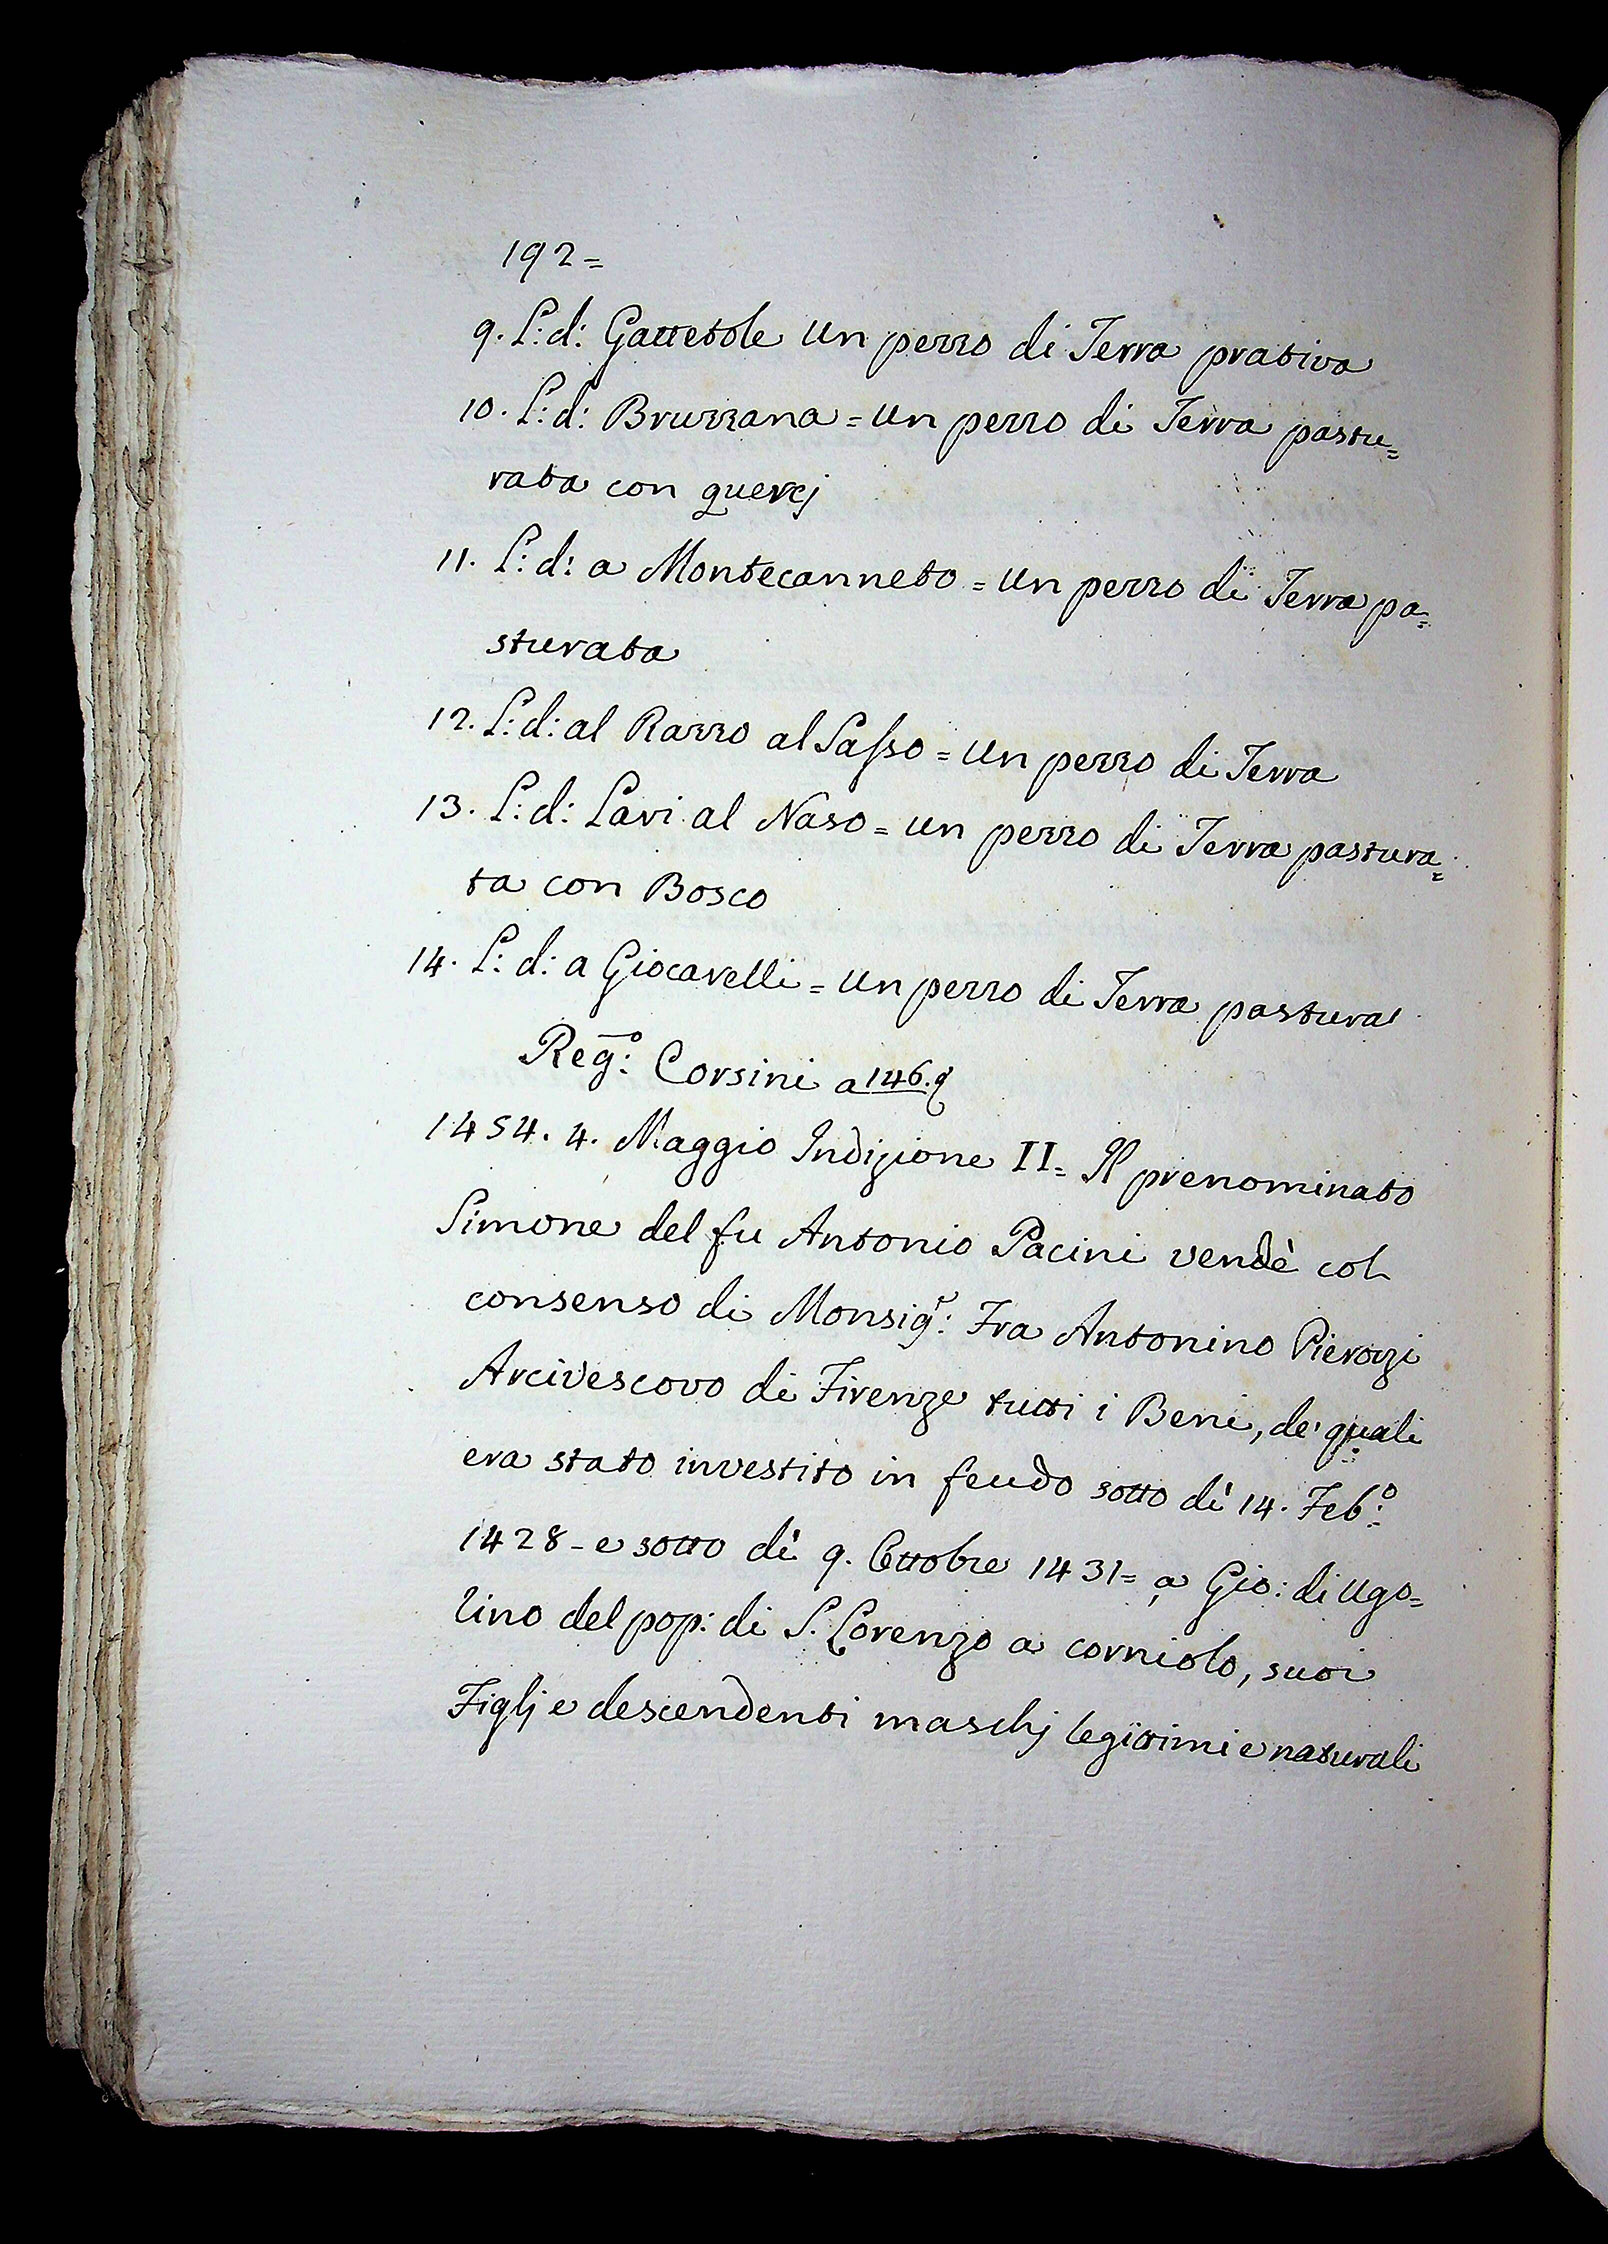 192=
9. L: d: Gattetole un pezzo di Terra prativa
10. L: d: Bruzzana = un pezzo di Terra pastu=
rata con quercj
11. L: d: a Montecanneto = un pezzo di Terra pa=
sturata
12. L: d: al Razzo al Sasso = un pezzo di Terra
13. L: d: Lavi al Naso = un pezzo di Terra pastura=
ta con Bosco
14. L: d: a Giocarelli = un pezzo di Terra pastura
Reg:º Corsini a 146.
1454. 4. Maggio Indizione II = Il prenominato
Simone del fu Antonio Pacini vendè col
consenso di Monsigr: Fra Antonino Pierozzi
Arcivescovo di Firenze tutti i Beni, de' quali
era stato investito in feudo sotto dì 14. Feb:º
1428 - e sotto dì 9. Ottobre 1431 = a Gio: di Ugo=
lino del pop: di S. Lorenzo a corniolo, suoi
Figlj e descendenti maschj legittimi e naturali